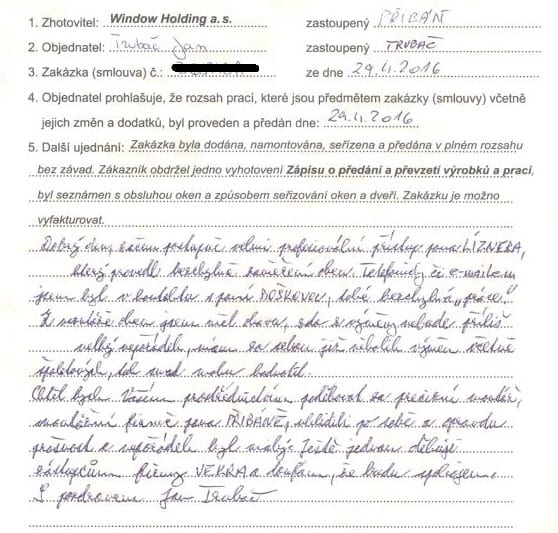 1. Zhotovitel: Window Holding a.s. zastoupený PŘIBÁŇ
2. Objednatel: Trubač Jan zastoupený TRUBAČ
3. Zakázka (smlouva) č.: ze dne 29.4.2016
4. Objednatel prohlašuje, že rozsah prací, které jsou předmětem zakázky (smlouvy) včetně
jejich změn a dodatků, byl proveden a předán dne: 29.4.2016
5. Další ujednání: Zakázka byla dodána, namontována, seřízena a předána v plném rozsahu
bez závad. Zákazník obdržel jedno vyhotovení Zápisu o předání a převzetí výrobků a prací,
byl seznámen s obsluhou oken a způsobem seřizování oken a dveří. Zakázku je možno
vyfakturovat.
Dobrý den, velmi profesionální přístup pana LÍZNERA,
který provedl bezchybné zaměření oken. Telefonicky či e-mailem
jsem byl v kontaktu s paní DOŠKOVOU, také bezchybná „práce".
Z montáže oken jsem měl obavu, zda s výměny nebude příliš
velký nepořádek, mám za sebou již několik výměn včetně
špaletových, tak snad mohu hodnotit.
Chtěl bych Vaším prostřednictvím poděkovat za precizní montáž,
montážní firmě pana PŘIBÁNĚ, uklidili po sobě a opravdu
prašnost a nepořádek byl malý. Ještě jednou děkuji
zástupcům firmy VEKRA a doufám, že budu spokojen.
S pozdravem Jan Trubač